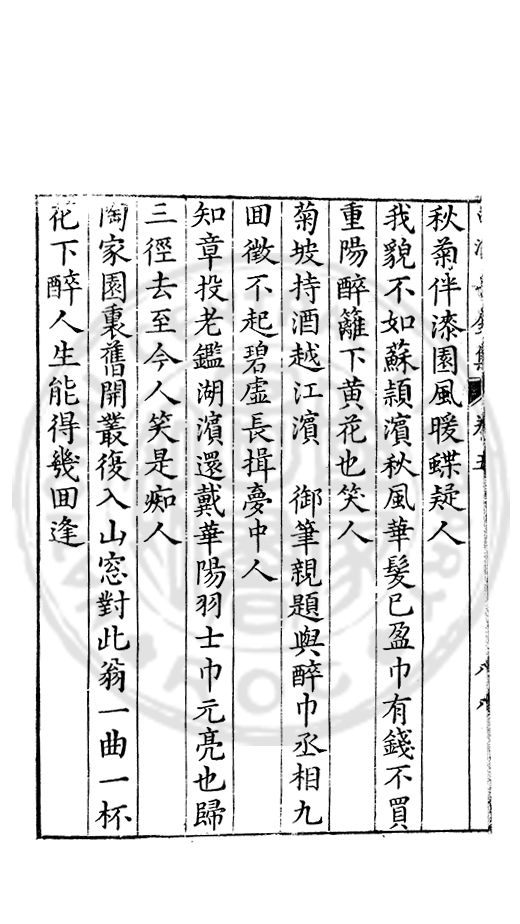 秋菊伴漆園風暖蝶疑人
我貌不如蘇潁濱秋風華髮已盈巾有錢不買
重陽醉籬下黃花也笑人
菊坡持酒越江濱　御筆親題與醉巾丞相九
囬徵不起碧虛長揖夢中人
知章投老鑑湖濱還戴華陽羽士巾元亮也歸
三徑去至今人笑是痴人
陶家園裏舊開叢復入山窓對此翁一曲一杯
花下醉人生能得幾囬逢
卷五